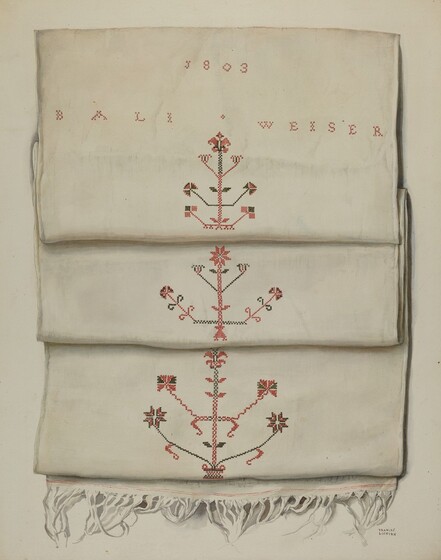 1803
BALI WEISER